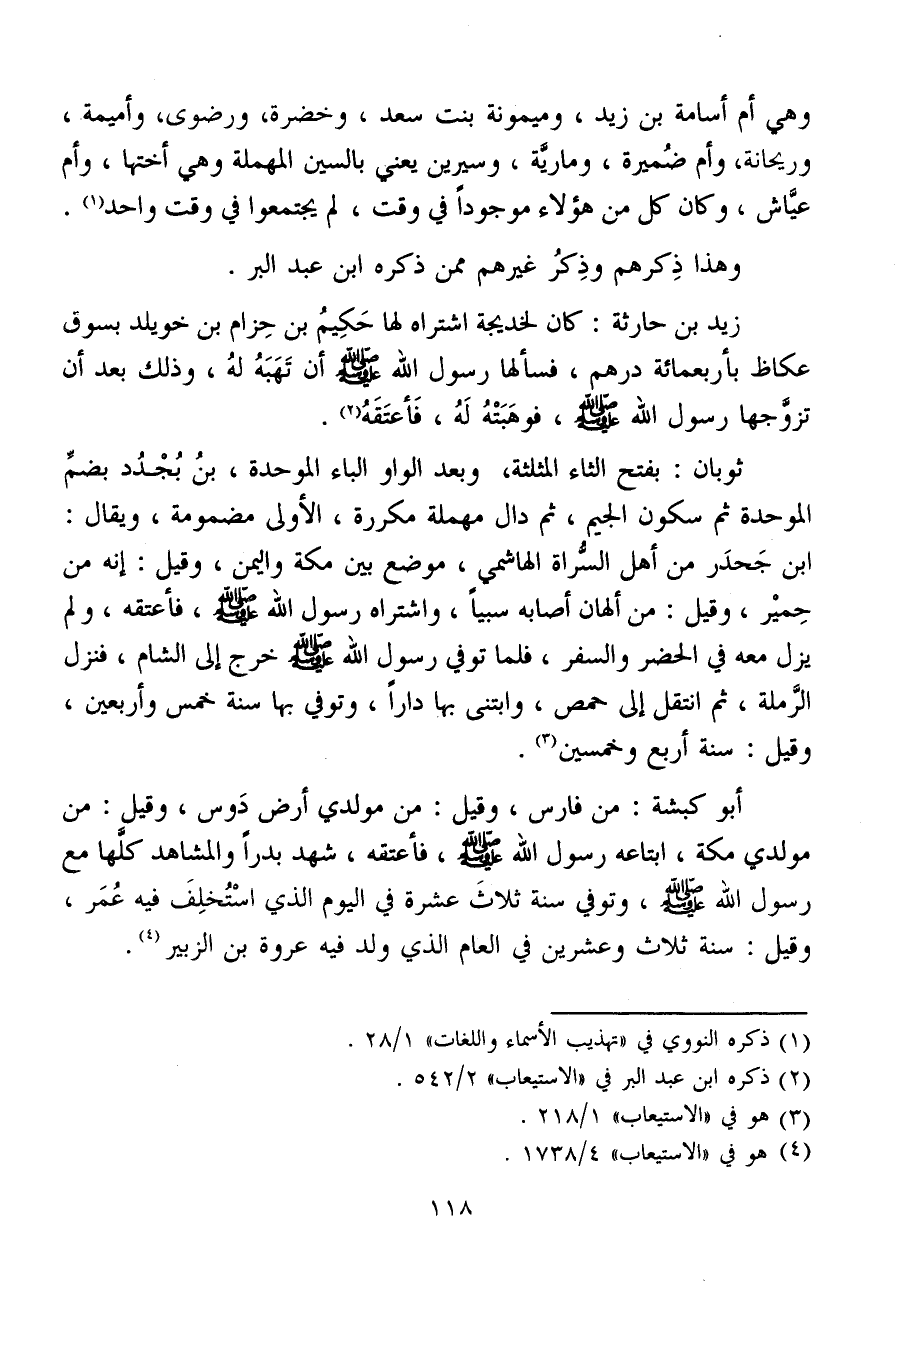 وهي أم أسامة بن زيد ، وميمونة بنت سعد ، وخضرة، ورضوى، وأميمة ،
وريحانة، وأم ضُميرة ، وماريَّة ، وسيرين يعني بالسين المهملة وهي أختها ، وأم
عيَّاش ، وكان كل من هؤلاء موجوداً في وقت ، لم يجتمعوا في وقت واحد(١) .
وهذا ذِكرهم وذِكرُ غيرهم ممن ذكره ابن عبد البر .
زيد بن حارثة : كان لخديجة اشتراه لها حَكِيمُ بن حِزام بن خويلد بسوق
عكاظ بأربعمائة درهم ، فسألها رسول الله ﷺ أن تَهَبَهُ لهُ ، وذلك بعد أن
تزوَّجها رسول الله ﷺ ، فوهَبَتْهُ لَهُ ، فَأعتَقَهُ(٢) .
ثوبان : بفتح الثاء المثلثة، وبعد الواو الباء الموحدة ، بنُ بُجْـدُد بضمِّ
الموحدة ثم سكون الجيم ، ثم دال مهملة مكررة ، الأولى مضمومة ، ويقال :
ابن جَحدَر من أهل السُّراة الهاشمي ، موضع بين مكة واليمن ، وقيل : إنه من
حِميْر ، وقيل : من ألهان أصابه سبياً ، واشتراه رسول الله ﷺ ، فأعتقه ، ولم
يزل معه في الحضر والسفر ، فلما توفي رسول الله ﷺ خرج إلى الشام ، فنزل
الرَّملة ، ثم انتقل إلى حمص ، وابتنى بها داراً ، وتوفي بها سنة خمس وأربعين ،
وقيل : سنة أربع وخمسين(٣) .
أبو كبشة : من فارس ، وقيل : من مولدي أرض دَوس ، وقيل : من
مولدي مكة ، ابتاعه رسول الله ﷺ ، فأعتقه ، شهد بدراً والمشاهد كلَّها مع
رسول الله ﷺ ، وتوفي سنة ثلاثَ عشرة في اليوم الذي استُخلِفَ فيه عُمَر ،
وقيل : سنة ثلاث وعشرين في العام الذي ولد فيه عروة بن الزبير (٤) .
(١) ذكره النووي في «تهذيب الأسماء واللغات» ٢٨/١ .
(٢) ذكره ابن عبد البر في «الاستيعاب» ٥٤٢/٢ .
(٣) هو في «الاستيعاب» ٢١٨/١ .
(٤) هو في «الاستيعاب» ١٧٣٨/٤ .
١١٨